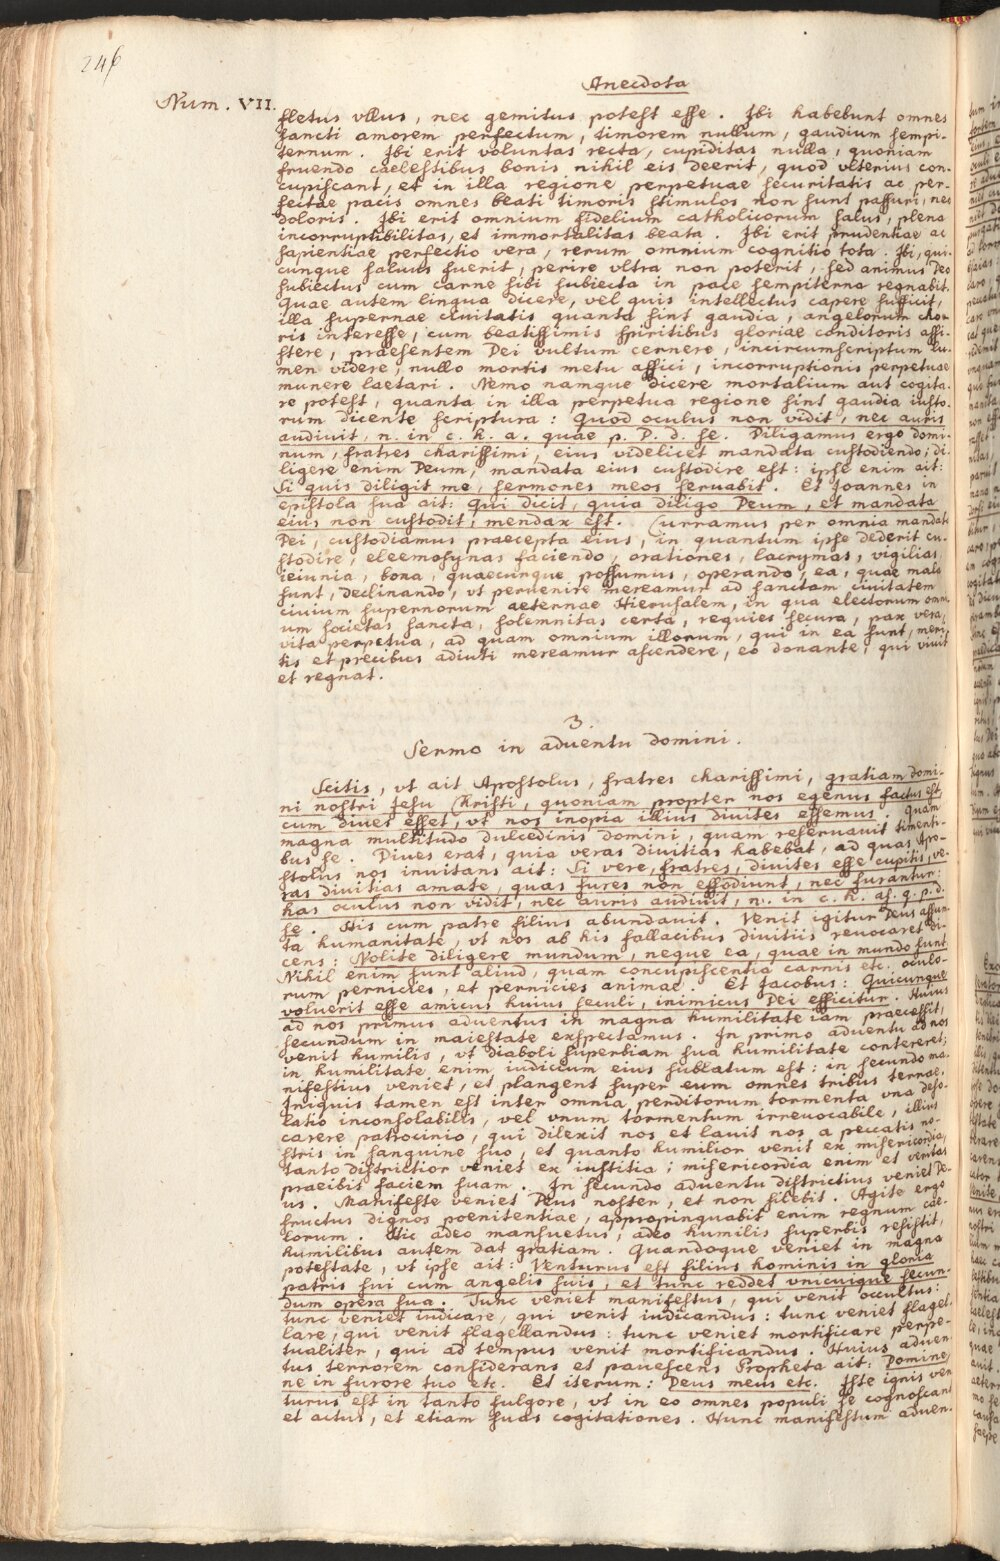 246
Anecdota
Num. VII.
fletus vllus, nec gemitus potest esse. Ibi habebunt omnes
sancti amorem perfectum, timorem nullum, gaudium sempi-
ternum. Ibi erit voluntas recta, cupiditas nulla, quoniam
fruendo caelestibus bonis nihil eis deerit, quod vlterius con-
cupiscant, et in illa regione perpetuae securitatis ac per-
fectae pacis omnes beati timoris stimulos non sunt passuri, nec
doloris. Ibi erit omnium fidelium catholicorum salus, plena
incorruptibilitas, et immortalitas beata. Ibi erit prudentiae ac
sapientiae perfectio vera, rerum omnium cognitio tota. Ibi, qui-
cunque saluus fuerit, perire vltra non poterit, sed animus Deo
subiectus cum carne sibi subiecta in pace sempiterna regnabit.
Quae autem lingua dicere, vel quis intellectus capere sufficit,
illa supernae ciuitatis quanta sint gaudia, angelorum cho-
ris interesse, cum beatissimis spiritibus gloriae conditoris assi-
stere, praesentem Dei vultum cernere, incircumscriptum lu-
men videre, nullo mortis metu affici, incorruptionis perpetuae
munere laetari. Nemo namque dicere mortalium aut cogita-
re potest, quanta in illa perpetua regione sint gaudia iusto-
rum dicente scriptura: Quod oculus non vidit, nec auris
audiuit, n. in c. h. a. quae p. D. d. se. Diligamus ergo domi-
num, fratres charissimi, eius videlicet mandata custodiendo; di-
ligere enim Deum, mandata eius custodire est: ipse enim ait:
Si quis diligit me, sermones meos seruabit. Et Joannes in
epistola sua ait: qui dicit, quia diligo Deum, et mandata
eius non custodit, mendax est. Curramus per omnia mandata
Dei, custodiamus praecepta eius, in quantum ipse dederit cu-
stodire, eleemosynas faciendo, orationes, lacrymas, vigilias,
ieiunia, bona, quaecunque possumus, operando, ea, quae mala
sunt, declinando, vt peruenire mereamur ad sanctam ciuitatem
ciuium supernorum aeternae Hierusalem, in qua electorum omni-
um societas sancta, solemnitas certa, requies secura, pax vera,
vita perpetua, ad quam omnium illorum, qui in ea sunt, meri-
tis et precibus adiuti mereamur ascendere, eo donante, qui viuit
et regnat.
3
Sermo in aduentu domini.
Scitis, vt ait Apostolus, fratres charissimi, gratiam domi-
ni nostri Jesu Christi, quoniam propter nos egenus factus est,
cum diues esset, vt nos inopia illius diuites essemus. Quam
magna multitudo dulcedinis domini, quam reseruauit timenti-
bus se. Diues erat, quia veras diuitias habebat, ad quas Apo-
stolus nos inuitans ait: Si vere, fratres, diuites esse cupitis, ve-
ras diuitias amate, quas fures non effodiunt, nec furantur:
has oculus non vidit, nec auris audiuit, n. in c. h. as. q. p. d.
se. His cum patre filius abundauit. Venit igitur Deus assum-
ta humanitate, vt nos ab his fallacibus diuitiis reuocaret di-
cens: Nolite diligere mundum, neque ea, quae in mundo sunt.
Nihil enim sunt aliud, quam concupiscentia carnis etc. oculo-
rum pernicies, et pernicies animae. Et Jacobus: Quicunque
voluerit esse amicus huius seculi, inimicus Dei efficitur. Huius
ad nos primus aduentus in magna humilitate iam praecessit,
secundum in maiestate exspectamus. In primo aduentu ad nos
venit humilis, vt diaboli superbiam sua humilitate contereret;
in humilitate enim iudicium eius sublatum est: in secundo ma-
nifestius veniet, et plangent super eum omnes tribus terrae.
Iniquis tamen est inter omnia perditorum tormenta vna deso-
latio inconsolabilis, vel vnum tormentum irreuocabile, illius
carere patrocinio, qui dilexit nos et lauit nos a peccatis no-
stris in sanguine suo, et quanto humilior venit ex misericordia,
tanto districtior veniet ex iustitia; misericordia enim et veritas
praeibit faciem suam. In secundo aduentu districtius veniet De-
us. Manifeste veniet Deus noster, et non silebit. Agite ergo
fructus dignos poenitentiae, appropinquabit enim regnum cae-
lorum. Hic adeo mansuetus, adeo humilis superbis resistit,
humilibus autem dat gratiam. Quandoque veniet in magna
potestate, vt ipse ait: Venturus est filius hominis in gloria
patris sui cum angelis suis, et tunc reddet vnicuique secun-
dum opera sua. Tunc veniet manifestus, qui venit occultus:
tunc veniet iudicare, qui venit iudicandus: tunc veniet flagel-
lare, qui venit flagellandus: tunc veniet mortificare perpe-
tualiter, qui ad tempus venit mortificandus. Huius aduen-
tus terrorem considerans et pauescens Propheta ait: Domine,
ne in furore tuo etc. Et iterum: Deus meus etc. Iste ignis ven-
turus est in tanto fulgore, vt in eo omnes populi se cognoscant
et actus, et etiam suas cogitationes. Hunc manifestum aduen-